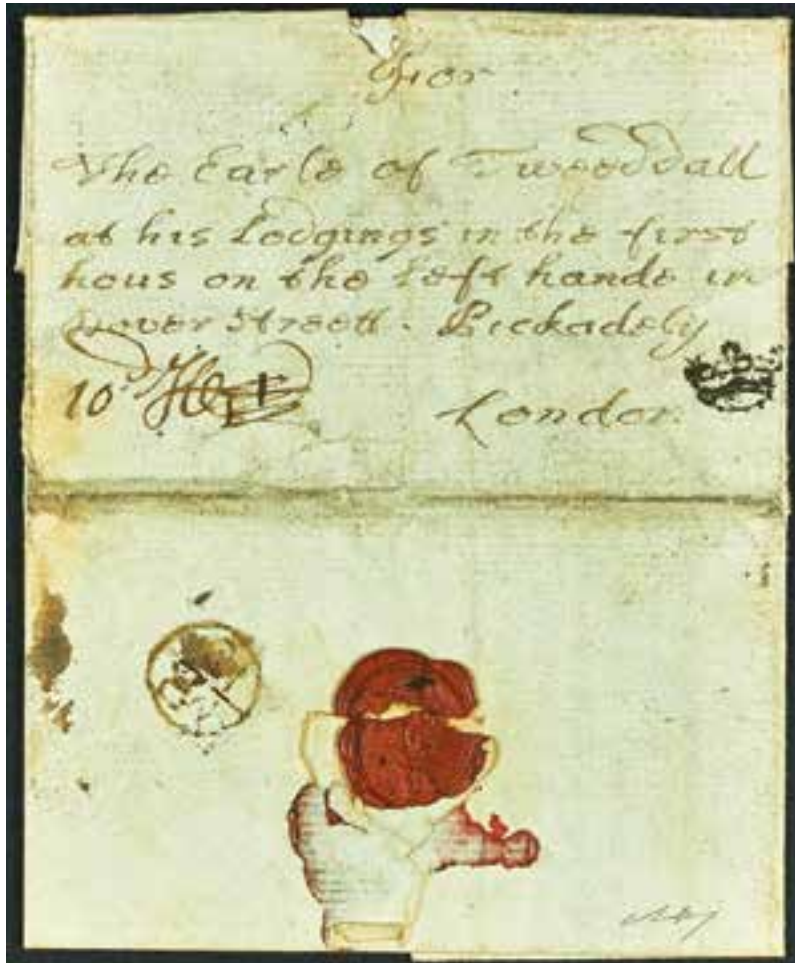 For
The Earle of Tweeddall
at his Lodgings in the first
hous on the left hande in
Dover Streett. Pickadely
10d
London